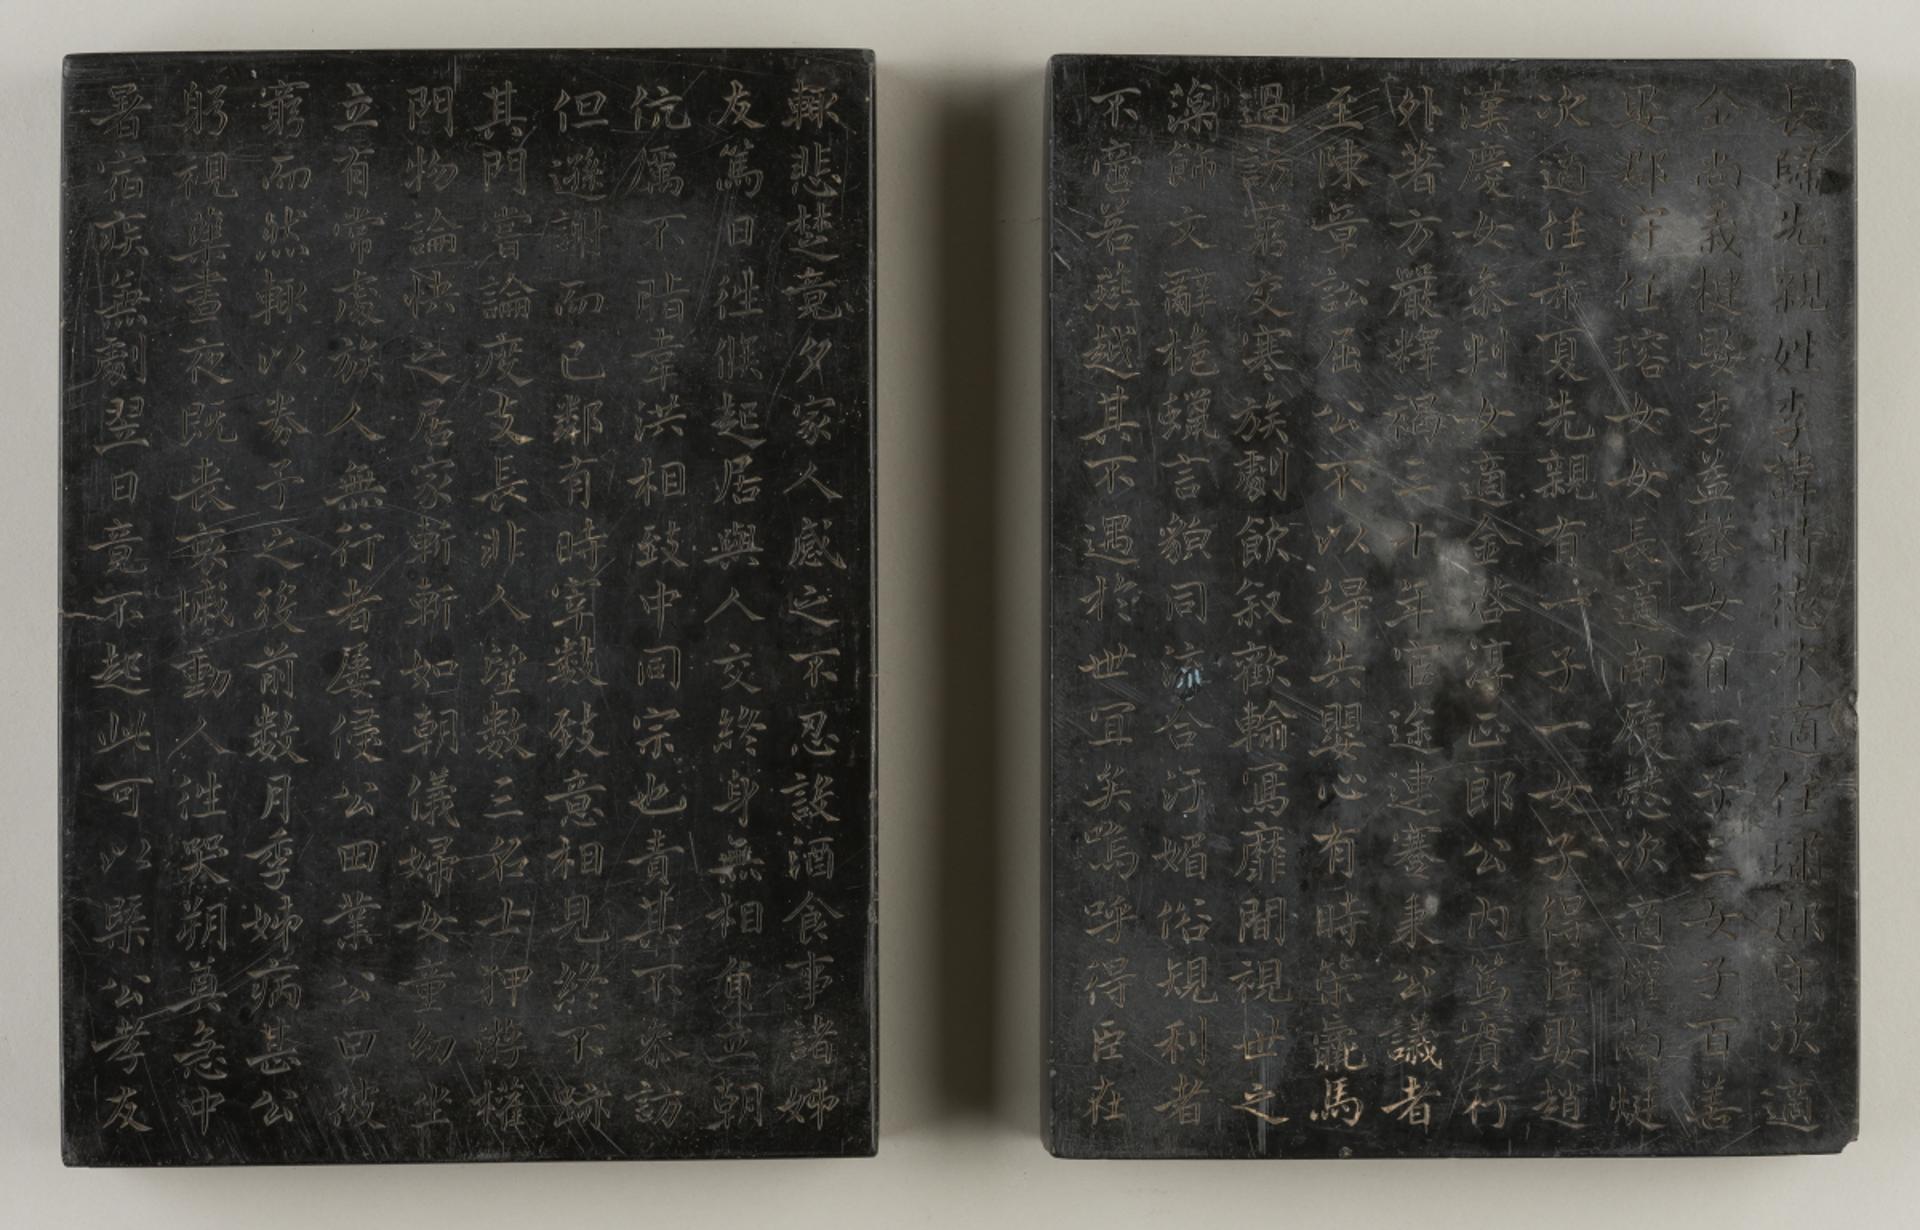 長歸先親姓李韓時德次適任璛郡守次適
金尚義楗娶李蓋馨女有一子三女子百善
娶郡守任瑢女女長適南履懋次適權尚
次適任泰夏先親有一子一女子得臣娶趙
漢慶女參判女適金啓淳正郎公內篤實行
外著方嚴釋褐二十年官途連蹇秉公議者
至陳章訟屈公不以得失嬰心有時策羸馬
過訪窮交寒族劇飲叙歡輪寫靡間視世之
藻飾文辭梔蠟言貌同流合汙媚俗規利者
不啻若燕越其不遇於世宜矣嗚呼得臣在
輒悲楚竟夕家人感之不忍設酒食事諸姊
友篤日徃候起居與人交終身無相負立朝
伉厲不脂韋洪相致中同宗也責其不叅訪
但遜謝而已鄰有時宰數致意相見終不跡
其門嘗論度支長非人望數三名士狎游權
門物論快之居家斬斬如朝儀婦女童幼坐
立有常處族人無行者屢侵公田業公曰彼
窮而然輒以券予之後前數月季姊病甚公
躬視藥晝夜既喪哀慽動人徃哭朔奠急中
暑宿疾無劇翌日竟不起此可以槩公孝友